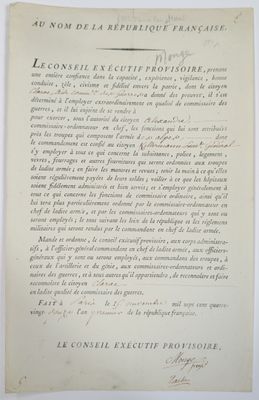 AU NOM DE LA RÉPUBLIQUE FRANÇAISE.
Monge
LE CONSEIL EXÉCUTIF PROVISOIRE, prenant
une entière confiance dans la capacité, expérience, vigilance, bonne
conduite, zèle, civisme et fidélité envers la patrie, dont le citoyen
donné des preuves, il s'en
déterminé à l'employer extraordinairement en qualité de commissaire des
guerres, et il lui enjoint de se rendre à
pour exercer, sous l'autorité du citoyen Alexandre
commissaire-ordonnateur en chef, les fonctions qui lui sont attribuées
près les troupes qui composent l'armée des alpes dont
le commandement est confié au citoyen Kellermann
s'y employer à tout ce qui concerne la subsistance, police, logement,
vivres, fourrages et autres fournitures qui seront ordonnées aux troupes
de ladite armée ; en faire les montres et revues ; tenir la main à ce qu'elles
soient régulièrement payées de leur soldes ; veiller à ce que les hôpitaux
soient fidèlement administrés et bien servis, et s'employer généralement à
tout ce qui concerne les fonctions de commissaire ordinaire, ainsi qu'il
lui sera plus particulièrement ordonné par le commissaire-ordonnateur en
chef de ladite armée, et par les commissaires-ordonnateurs qui y sont ou
seront employés ; le tout suivant les lois de la république et les règlemens
militaires qui seront rendus par le commandant en chef de ladite armée.
Mande et ordonne, le conseil exécutif provisoire, aux corps administra-
tifs, à l'officier-général commandant en chef de ladite armée, aux officiers-
généraux qui y sont ou seront employés, aux commandans des troupes, à
ceux de l'artillerie et du génie, aux commissaires-ordonnateurs et ordi-
naires des guerres, et à tous autres qu'il appartiendra, de reconnoître et faire
reconnoître le citoyen
en ladite qualité de commissaire des guerres.
FAIT à Paris le novembre mil sept cent quatre-
vingt douze l'an premier de la république française.
LE CONSEIL EXÉCUTIF PROVISOIRE,
Monge